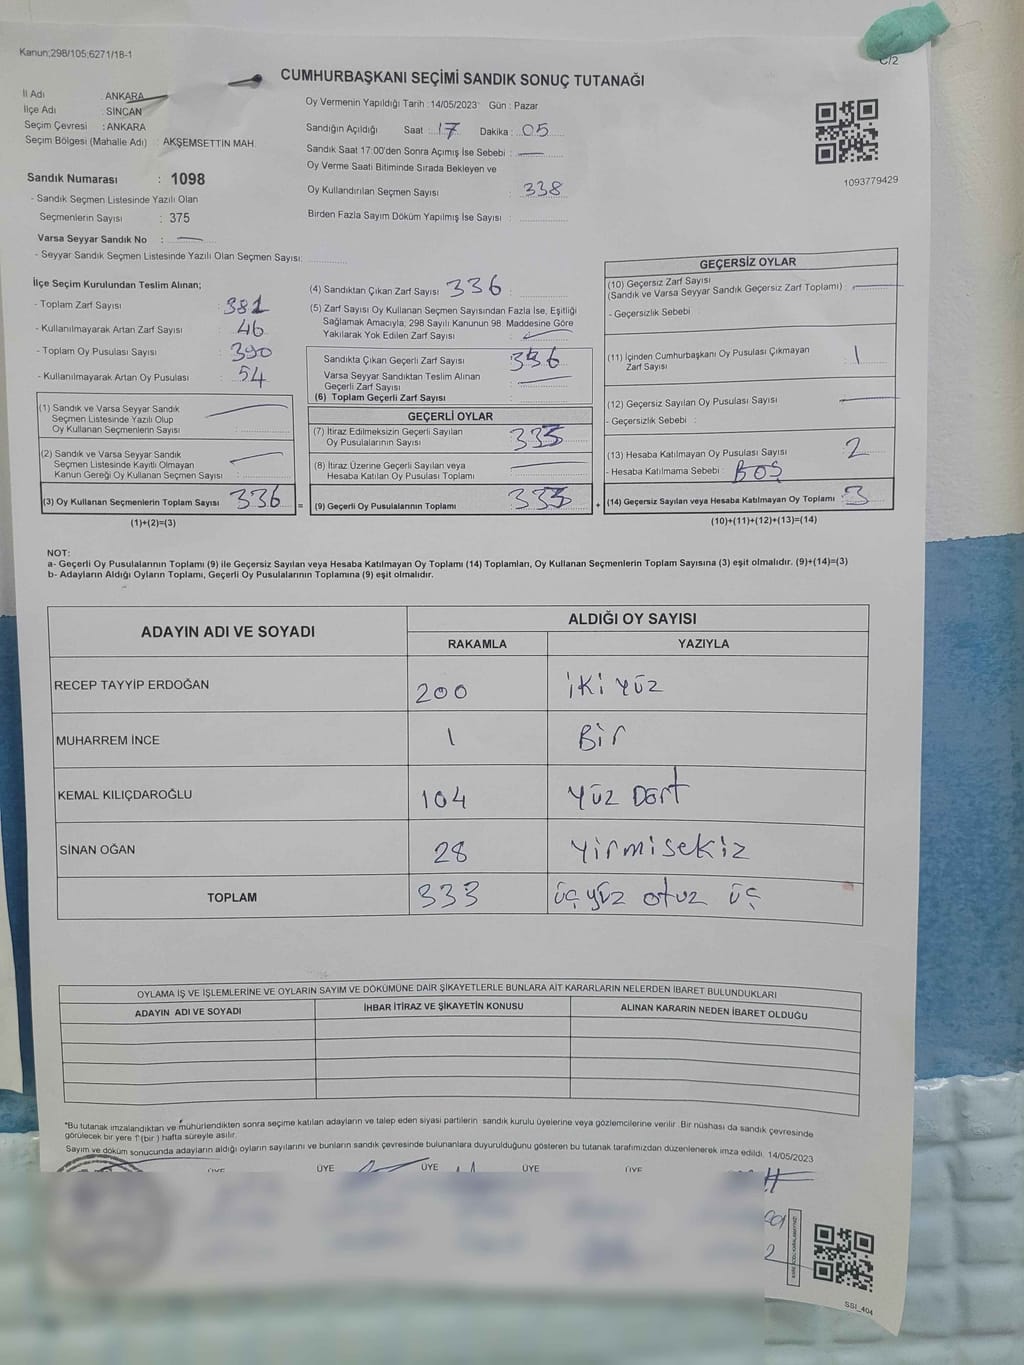 Kanun;298/105;6271/18-1
C/2
CUMHURBAŞKANI SEÇİMİ SANDIK SONUÇ TUTANAĞI
İl Adı : ANKARA
İlçe Adı : SİNCAN
Seçim Çevresi : ANKARA
Seçim Bölgesi (Mahalle Adı) : AKŞEMSETTİN MAH.
Sandık Numarası : 1098
- Sandık Seçmen Listesinde Yazılı Olan
Seçmenlerin Sayısı : 375
Varsa Seyyar Sandık No :
- Seyyar Sandık Seçmen Listesinde Yazılı Olan Seçmen Sayısı:
Oy Vermenin Yapıldığı Tarih :14/05/2023 Gün : Pazar
Sandığın Açıldığı Saat : 17 Dakika : 05
Sandık Saat 17:00'den Sonra Açımış İse Sebebi :
Oy Verme Saati Bitiminde Sırada Bekleyen ve
Oy Kullandırılan Seçmen Sayısı : 338
Birden Fazla Sayım Döküm Yapılmış İse Sayısı :
1093779429
İlçe Seçim Kurulundan Teslim Alınan;
- Toplam Zarf Sayısı : 381
- Kullanılmayarak Artan Zarf Sayısı : 46
- Toplam Oy Pusulası Sayısı : 390
- Kullanılmayarak Artan Oy Pusulası : 54
(1) Sandık ve Varsa Seyyar Sandık
Seçmen Listesinde Yazılı Olup
Oy Kullanan Seçmenlerin Sayısı :
(2) Sandık ve Varsa Seyyar Sandık
Seçmen Listesinde Kayıtlı Olmayan
Kanun Gereği Oy Kullanan Seçmen Sayısı :
(3) Oy Kullanan Seçmenlerin Toplam Sayısı : 336
(1)+(2)=(3)
(4) Sandıktan Çıkan Zarf Sayısı 336 :
(5) Zarf Sayısı Oy Kullanan Seçmen Sayısından Fazla İse, Eşitliği
Sağlamak Amacıyla; 298 Sayılı Kanunun 98. Maddesine Göre
Yakılarak Yok Edilen Zarf Sayısı :
Sandıkta Çıkan Geçerli Zarf Sayısı : 336
Varsa Seyyar Sandıktan Teslim Alınan
Geçerli Zarf Sayısı :
(6) Toplam Geçerli Zarf Sayısı :
GEÇERLİ OYLAR
(7) İtiraz Edilmeksizin Geçerli Sayılan
Oy Pusulalarının Sayısı : 333
(8) İtiraz Üzerine Geçerli Sayılan veya
Hesaba Katılan Oy Pusulası Toplamı :
(9) Geçerli Oy Pusulalarının Toplamı : 333
=
+
GEÇERSİZ OYLAR
(10) Geçersiz Zarf Sayısı
(Sandık ve Varsa Seyyar Sandık Geçersiz Zarf Toplamı) :
- Geçersizlik Sebebi :
(11) İçinden Cumhurbaşkanı Oy Pusulası Çıkmayan
Zarf Sayısı : 1
(12) Geçersiz Sayılan Oy Pusulası Sayısı :
- Geçersizlik Sebebi :
(13) Hesaba Katılmayan Oy Pusulası Sayısı : 2
- Hesaba Katılmama Sebebi : BOŞ
(14) Geçersiz Sayılan veya Hesaba Katılmayan Oy Toplamı : 3
(10)+(11)+(12)+(13)=(14)
NOT:
a- Geçerli Oy Pusulalarının Toplamı (9) ile Geçersiz Sayılan veya Hesaba Katılmayan Oy Toplamı (14) Toplamları, Oy Kullanan Seçmenlerin Toplam Sayısına (3) eşit olmalıdır. (9)+(14)=(3)
b- Adayların Aldığı Oyların Toplamı, Geçerli Oy Pusulalarının Toplamına (9) eşit olmalıdır.
ADAYIN ADI VE SOYADI
ALDIĞI OY SAYISI
RAKAMLA YAZIYLA
RECEP TAYYİP ERDOĞAN 200 iki yüz
MUHARREM İNCE 1 Bir
KEMAL KILIÇDAROĞLU 104 Yüz Dört
SİNAN OĞAN 28 Yirmisekiz
TOPLAM 333 üç yüz otuz üç
OYLAMA İŞ VE İŞLEMLERİNE VE OYLARIN SAYIM VE DÖKÜMÜNE DAİR ŞİKAYETLERLE BUNLARA AİT KARARLARIN NELERDEN İBARET BULUNDUKLARI
ADAYIN ADI VE SOYADI İHBAR İTİRAZ VE ŞİKAYETİN KONUSU ALINAN KARARIN NEDEN İBARET OLDUĞU
*Bu tutanak imzalandıktan ve mühürlendikten sonra seçime katılan adayların ve talep eden siyasi partilerin sandık kurulu üyelerine veya gözlemcilerine verilir. Bir nüshası da sandık çevresinde
görülecek bir yere 1 (bir) hafta süreyle asılır.
Sayım ve döküm sonucunda adayların aldığı oyların sayılarını ve bunların sandık çevresinde bulunanlara duyurulduğunu gösteren bu tutanak tarafımızdan düzenlenerek imza edildi. 14/05/2023
ÜYE ÜYE ÜYE ÜYE ÜYE
SSI_404